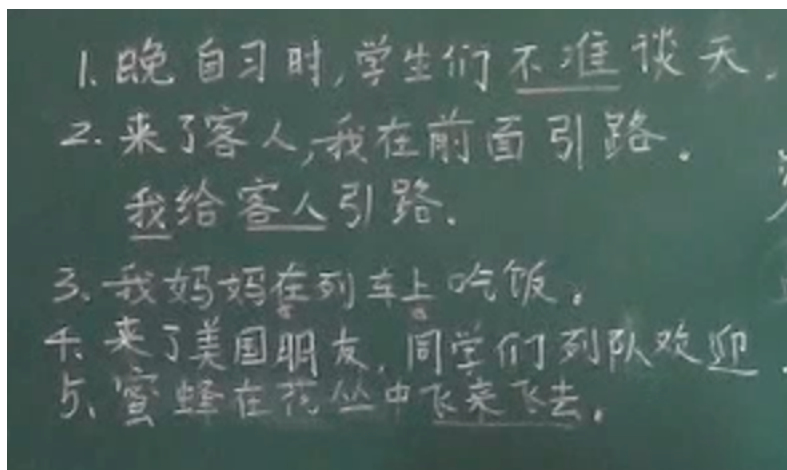 1. 晚自习时,学生们不准谈天.
2. 来了客人,我在前面引路。
我给客人引路.
3、我妈妈在列车上吃饭。
4、来了美国朋友,同学们列队欢迎.
5、蜜蜂在花丛中飞来飞去.